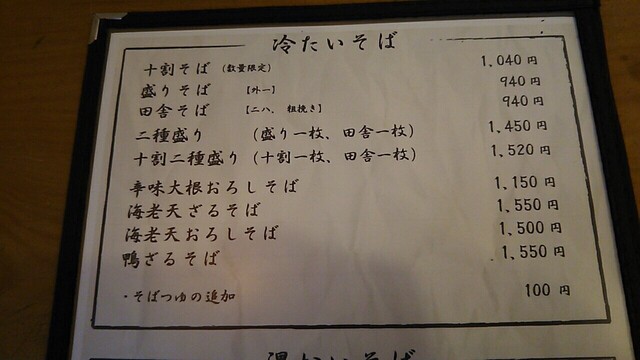 冷たいそば
十割そば (数量限定) 1,040円
盛りそば 【外一】 940円
田舎そば 【二八、粗挽き】 940円
二種盛り (盛り一枚、田舎一枚) 1,450円
十割二種盛り (十割一枚、田舎一枚) 1,520円
辛味大根おろしそば 1,150円
海老天ざるそば 1,550円
海老天おろしそば 1,500円
鴨ざるそば 1,550円
・そばつゆの追加 100円
温かいそば